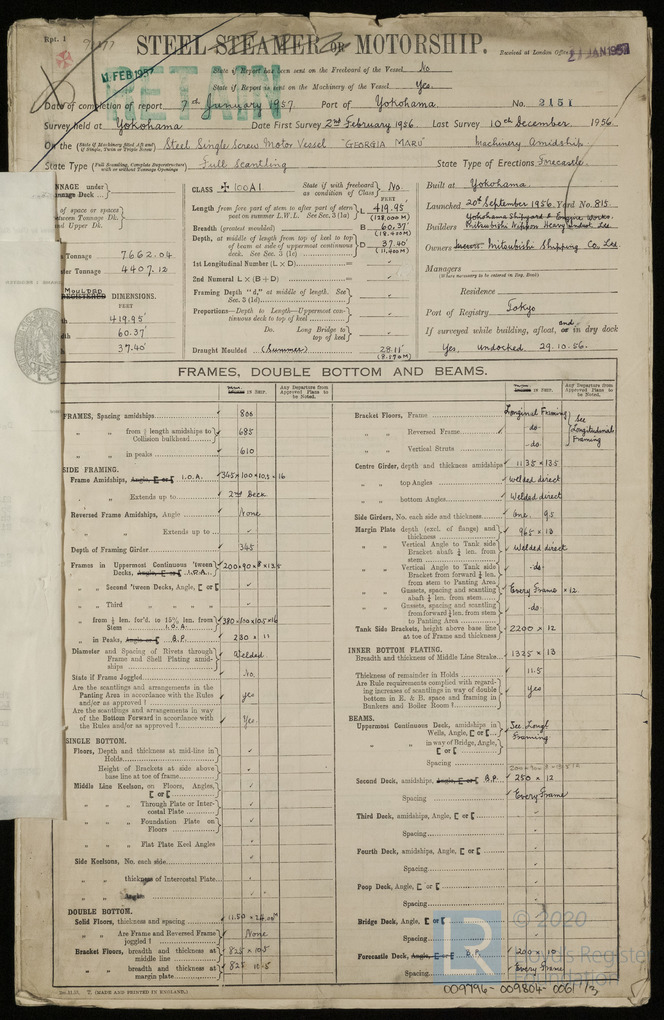 Rpt. 1
STEEL STEAMER OR MOTORSHIP.
Received at London Office 21 JAN 1957
11 FEB 1957
RETAIN
State if Report has been sent on the Freeboard of the Vessel No
State if Report is sent on the Machinery of the Vessel Yes.
Date of completion of report 7th January 1957 Port of Yokohama. No. 3151
Survey held at Yokohama Date First Survey 2nd February 1956 Last Survey 10th December 1956.
On the (State if Machinery fitted Aft and if Single, Twin or Triple Screw) Steel Single Screw Motor Vessel "GEORGIA MARU" Machinery Amidship
State Type (Full Scantling, Complete Superstructure with or without Tonnage Openings) Full Scantling State Type of Erections Forecastle.
NNAGE under
nnage Deck
of space or spaces
etween Tonnage Dk.
nd Upper Dk.
Tonnage 7662.04
ter Tonnage 4407.12
MOULDED
REGISTERED DIMENSIONS.
FEET
419.95'
60.37'
37.40'
CLASS ✠ 100A1 State if with freeboard as condition of Class No.
FEET
Length from fore part of stem to after part of stern post on summer L.W.L. See Sec. 3 (1a) L 419.95' (128,000 M)
Breadth (greatest moulded) B 60.37' (18.400M)
Depth, at middle of length from top of keel to top of beam at side of uppermost continuous deck. See Sec. 3 (1c) D 37.40' (11,400M)
1st Longitudinal Number (L × D)
2nd Numeral L × (B + D)
Framing Depth "d," at middle of length. See Sec. 3 (1d)
Proportions—Depth to Length—Uppermost continuous deck to top of keel
Do. Long Bridge to top of keel
Draught Moulded (Summer) 28.11' (8.570M)
Built at Yokohama.
Launched 20th September 1956. Yard No. 815
Yokohama Shipyard & Engine Works.
Builders Mitsubishi Nippon Heavy Indust. Ltd.
Owners Mitsubishi Shipping Co. Ltd.
Managers
(Where necessary to be entered in Reg. Book)
Residence
Port of Registry Tokyo
If surveyed while building, afloat, and or in dry dock
Yes. Undocked 29.10.56.
FRAMES, DOUBLE BOTTOM AND BEAMS.
in Ship. Any Departure from Approved Plans to be Noted.
FRAMES, Spacing amidships 800
" " from ⅕ length amidships to Collision bulkhead 685
" " in peaks 610
SIDE FRAMING.
Frame Amidships, Angle, [ or [ I.O.A. 345×100×10.5×16
" " Extends up to 2nd Deck
Reversed Frame Amidships, Angle None
" " Extends up to
Depth of Framing Girder 345
Frames in Uppermost Continuous 'tween Decks, Angle, [ or [ I.O.A. 200×90×8×13.5
" Second 'tween Decks, Angle, [ or [
" Third " "
" from ⅕ len. for'd. to 15% len. from Stem I.O.A. 380×100×10.5×16
" in Peaks, Angle or [ B.P. 230 × 11
Diameter and Spacing of Rivets through Frame and Shell Plating amidships Welded
State if Frame Joggled No.
Are the scantlings and arrangements in the Panting Area in accordance with the Rules and/or as approved? Yes
Are the scantlings and arrangements in way of the Bottom Forward in accordance with the Rules and/or as approved? Yes.
SINGLE BOTTOM.
Floors, Depth and thickness at mid-line in Holds
Height of Brackets at side above base line at toe of frame
Middle Line Keelson, on Floors, Angles, [ or [
" " Through Plate or Intercostal Plate
" " Foundation Plate on Floors
" " Flat Plate Keel Angles
Side Keelsons, No. each side
" " thickness of Intercostal Plate
" " Angles
DOUBLE BOTTOM.
Solid Floors, thickness and spacing 11.50 × 24.00M
" " Are Frame and Reversed Frame joggled? None
Bracket Floors, breadth and thickness at middle line 825 × 10.5
" " breadth and thickness at margin plate 825 10.5
in Ship. Any Departure from Approved Plans to be Noted.
Bracket Floors, Frame Longinal Framing
" " Reversed Frame do.
" " Vertical Struts do.
See Longitudinal Framing
Centre Girder, depth and thickness amidships 1135 × 13.5
" " top Angles Welded direct
" " bottom Angles Welded direct
Side Girders, No. each side and thickness One. 9.5
Margin Plate depth (excl. of flange) and thickness 965 × 13
" " Vertical Angle to Tank side Bracket abaft ¼ len. from stem Welded direct
" " Vertical Angle to Tank side Bracket from forward ¼ len. from stem to Panting Area do.
" " Gussets, spacing and scantling abaft ¼ len. from stem Every Frame × 12
" " Gussets, spacing and scantling from forward ¼ len. from stem to Panting Area do.
Tank Side Brackets, height above base line at toe of Frame and thickness 2200 × 12
INNER BOTTOM PLATING.
Breadth and thickness of Middle Line Strake 1325 × 13
Thickness of remainder in Holds 11.5
Are Rule requirements complied with regarding increases of scantlings in way of double bottom in E. & B. space and framing in Bunkers and Boiler Room? Yes
BEAMS.
Uppermost Continuous Deck, amidships in Wells, Angle, [ or [ See Longl Framing
" " in way of Bridge, Angle, [ or [
Spacing
Second Deck, amidships, Angle, [ or [ B.P. 250 × 12
Spacing Every Frame
Third Deck, amidships, Angle, [ or [
Spacing
Fourth Deck, amidships, Angle, [ or [
Spacing
Poop Deck, Angle, [ or [
Spacing
Bridge Deck, Angle, [ or [
Spacing
Forecastle Deck, Angle, [ or [ B.P. 200 × 10
Spacing Every Frame
T. (MADE AND PRINTED IN ENGLAND.)
LR
© 2020
Lloyd's Register
Foundation
009796-009804-0061 1/3